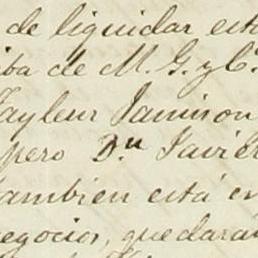 de liquidar esta
iba de M. G. y Cª
Tayleur Jamison
pero Dn Javier
tambien está en
negocios, quedarán